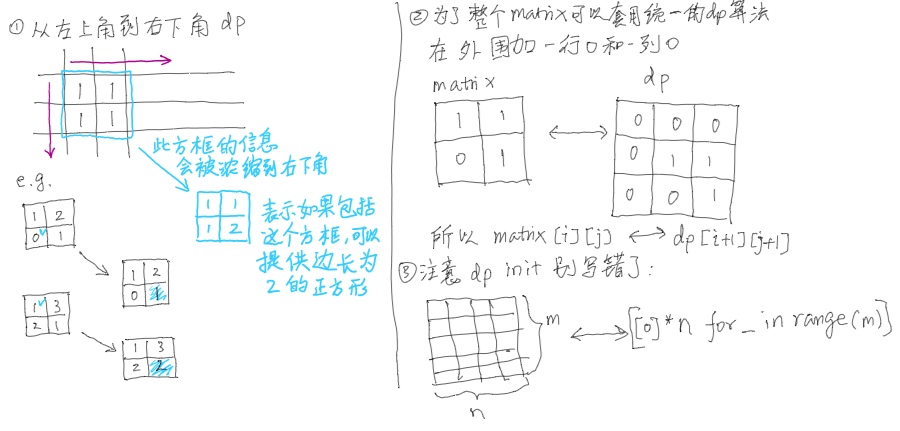 ① 从左上角到右下角 dp
1 1
1 1
此方框的信息
会被浓缩到右下角
1 1
1 2
表示如果包括
这个方框,可以
提供边长为
2的正方形
e.g.
1 2
0 1
1 2
0 1
1 3
2 1
1 3
2 2
② 为了整个matrix可以套用统一的dp算法
在外围加一行0和一列0
matrix
dp
1 1
0 1
0 0 0
0 1 1
0 0 1
所以 matrix[i][j] ↔ dp[i+1][j+1]
③ 注意 dp init 别写错了:
m
n
[[0]*n for _ in range(m)]